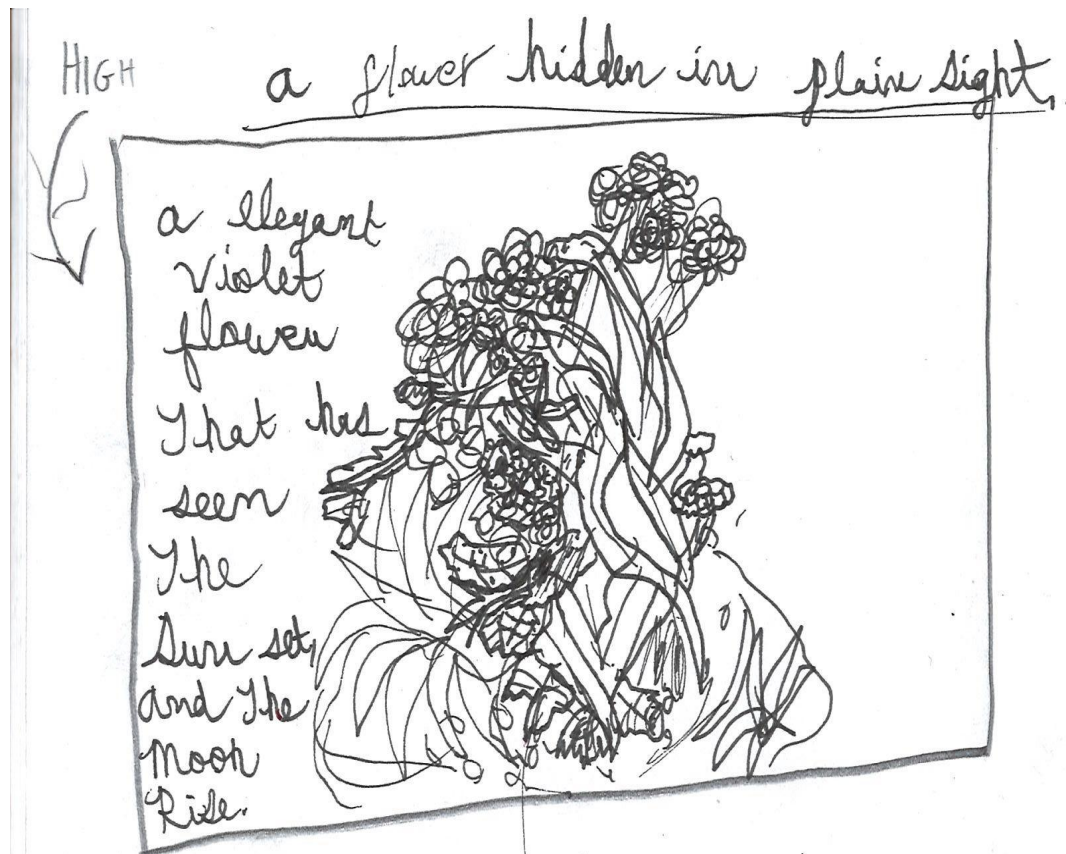 HIGH
a flower hidden in plain sight,
a elegant
violet
flower
That has
seen
The
Sun set,
and The
moon
Rise.